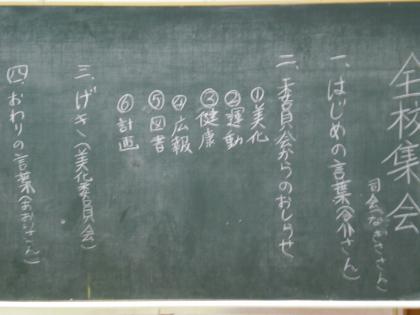 全校集会
司会なぎささん
一、はじめの言葉(介さん)
二、委員会からのおしらせ
①美化
②運動
③健康
④広報
⑤図書
⑥計画
三、げき(美化委員会)
四、おわりの言葉(さん)